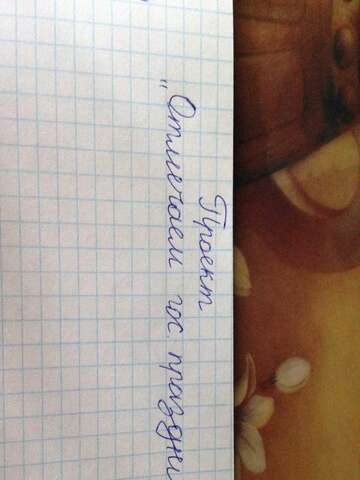 Проект
„Отмечаем гос. праздни